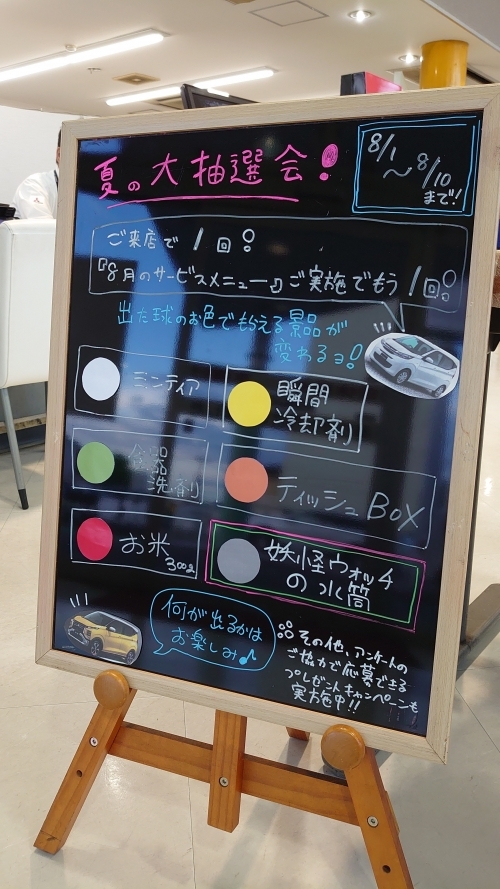 夏の大抽選会!
8/1
～8/10
まで!
ご来店で1回!
『8月のサービスメニュー』ご実施でもう1回!
出た球のお色でもらえる景品が
変わるョ!
ミンティア
瞬間
冷却剤
食器
洗剤
ティッシュBOX
お米
300g
妖怪ウォッチ
の水筒
何が出るかは
お楽しみ♪
その他、アンケートの
ご協力で応募できる
プレゼントキャンペーンも
実施中!!